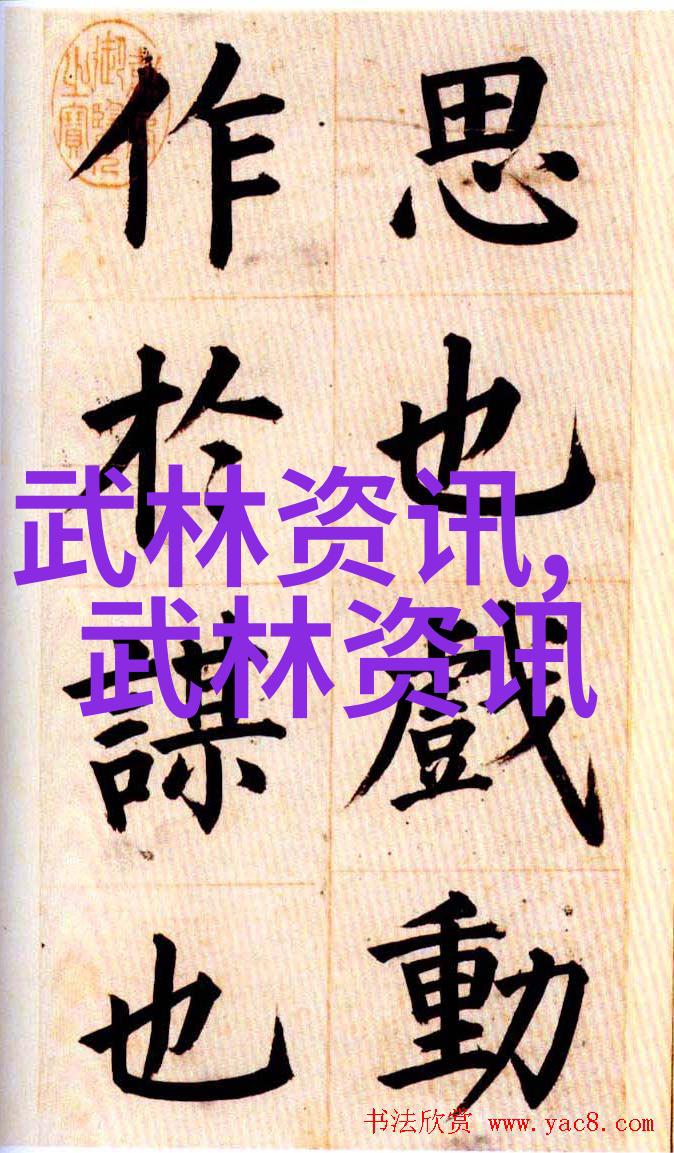 思也戲動
作於謀也
武林资讯,
武林资讯
书法欣赏 www.yac8.com